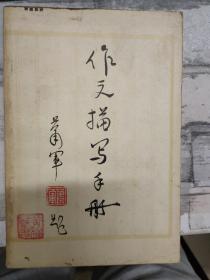 作文描写手册
萧军 题